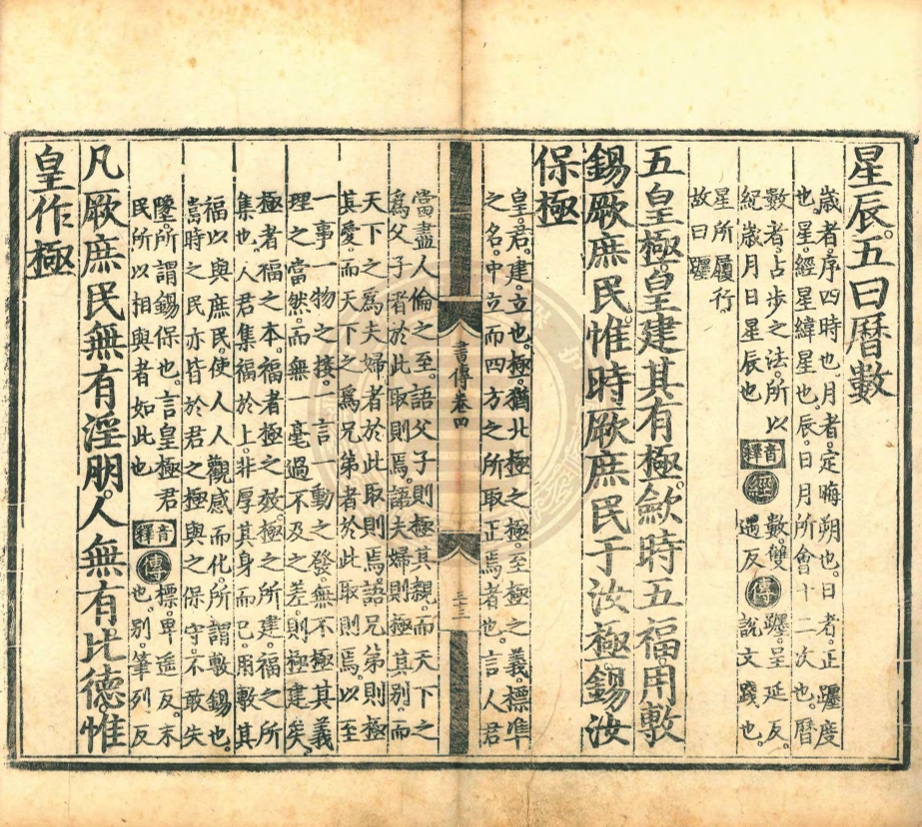 星辰。五曰曆數
歲者。序四時也。月者。定晦朔也。日者。正躔度
也。星。經星緯星也。辰。日月所會十二次也。曆
數者。占步之法。所以 音釋 經 數。雙 傳 躔。呈延反。
紀歲月日星辰也 遇反 說文踐也。
星所履行。
故曰躔
五皇極。皇建其有極。歛時五福。用敷
錫厥庶民。惟時厥庶民于汝極。錫汝
保極
皇。君。建。立也。極。猶北極之極。至極之義。標準
之名。中立而四方之所取正焉者也。言人君
書傳卷四
當盡人倫之至。語父子。則極其親。而天下之
為父子者於此取則焉。語夫婦。則極其别。而
天下之為夫婦者於此取則焉。語兄弟。則極
其愛。而天下之為兄弟者於此取則焉。以至
一事一物之接。一言一動之發。無不極其義
理之當然。而無一毫過不及之差。則極建矣。
極者。福之本。福者。極之效。極之所建。福之所
集也。人君集福於上。非厚其身而已。用敷其
福以與庶民。使人人觀感而化。所謂敷錫也。
當時之民。亦皆於君之極。與之保守。不敢失
墜。所謂錫保也。言皇極君 音釋 傳 標。卑遥反。末
民所以相與者如此也 也。别。筆列反
凡厥庶民。無有淫朋。人無有比德。惟
皇作極